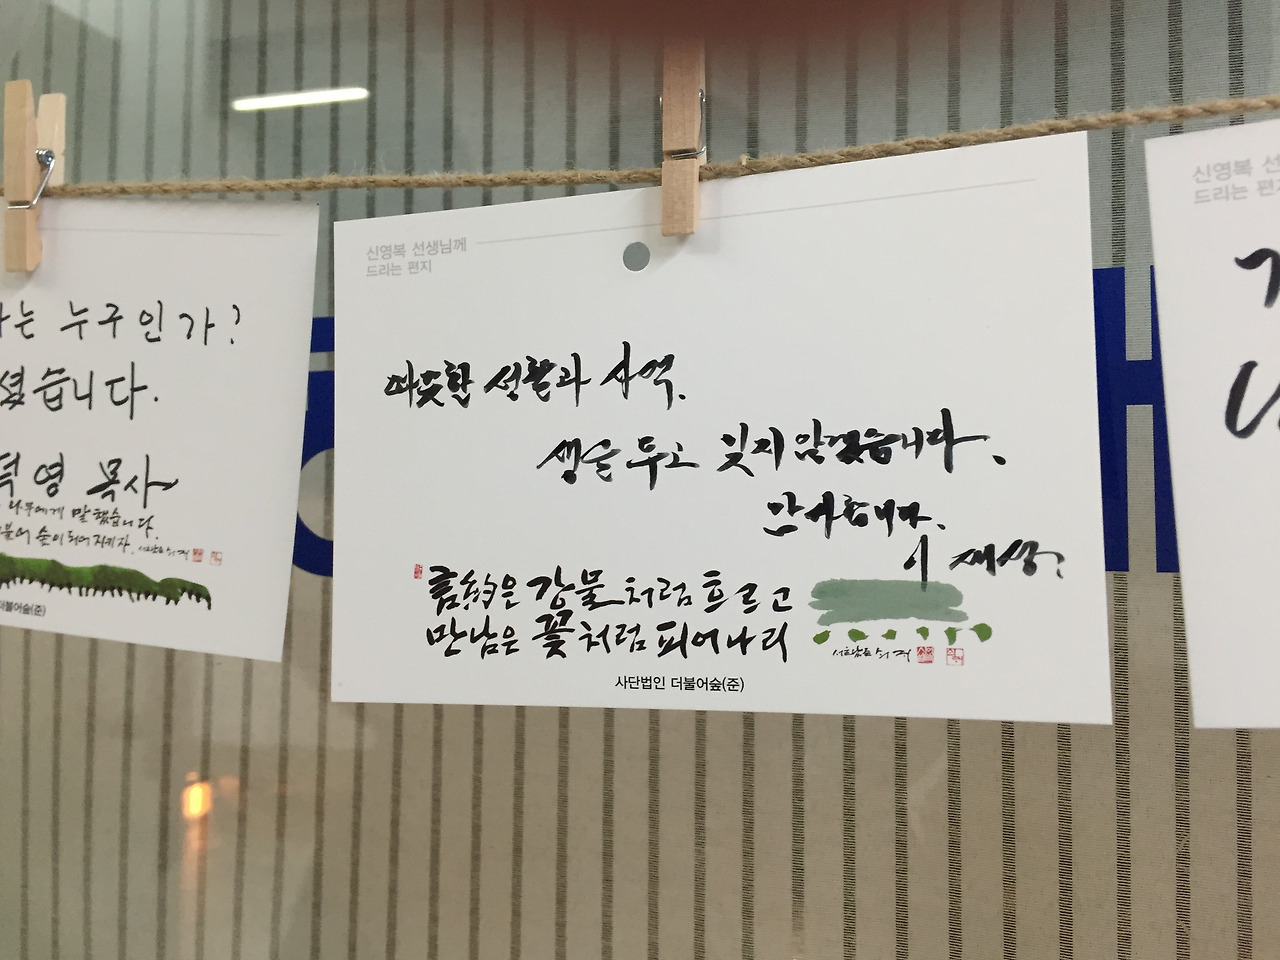 는 누구인가?
셨습니다.
덕영 목사
나무에게 말했습니다.
숲이 되어 지키자.
더불어숲(준)
신영복 선생님께
드리는 편지
따뜻한 성찰과 사색.
생을 두고 잊지 않겠습니다.
감사합니다.
이재성.
言約은 강물처럼 흐르고
만남은 꽃처럼 피어나리
사단법인 더불어숲(준)
신영복 선
드리는 편지
H